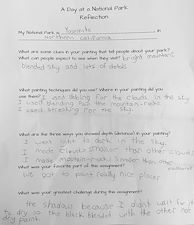 A Day at a National Park
Reflection
My National Park is Yosemite in
northern california
What are some clues in your painting that tell people about your park?
What can people expect to see when they visit? bright mountains
blended sky and lots of details
What painting techniques did you use? Where in your painting did you
use them? I used dabing for the clouds in the sky
I used blending for the mountain+rocks.
I used streaking for the sky.
What are the three ways you showed depth (distance) in your painting?
I went light to dark in the sky.
I made clouds smaller than other clouds
I made mountain+rocks smaller than other
What was your favorite part of the assignment?
we got to paint really nice places
What was your greatest challenge during the assignment?
the shadows because I didn't wait for it
to dry so the black blended with the other
dry paint.